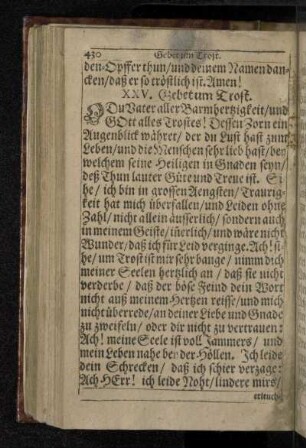 430 Gebet um Trost.
den-Opffer thun / und deinem Namen dan-
cken / daß er so tröstlich ist. Amen!
XXV. Gebet um Trost.
O Du Vater aller Barmhertzigkeit / und
GOtt alles Trostes! Dessen Zorn ein
Augenblick währet / der du Lust hast zum
Leben / und die Menschen sehr lieb hast / bey
welchem seine Heiligen in Gnaden seyn /
deß Thun lauter Güte und Treue ist. Si-
he / ich bin in grossen Aengsten / Traurig-
keit hat mich überfallen / und Leiden ohne
Zahl / nicht allein äusserlich / sondern auch
in meinem Geiste / innerlich / und wäre nicht
Wunder / daß ich für Leid verginge. Ach! si-
he / um Trost ist mir sehr bange / nimm dich
meiner Seelen hertzlich an / daß sie nicht
verderbe / daß der böse Feind dein Wort
nicht auß meinem Hertzen reisse / und mich
nicht überrede / an deiner Liebe und Gnade
zu zweifeln / oder dir nicht zu vertrauen:
Ach! meine Seele ist voll Jammers / und
mein Leben nahe bey der Höllen. Ich leide
dein Schrecken / daß ich schier verzage:
Ach HErr! ich leide Noht / lindere mirs /
erleuchte